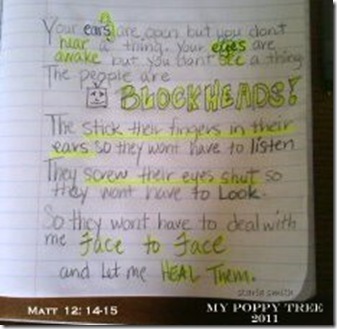 Your ears are open but you don't
hear a thing. Your eyes are
awake but you don't see a thing.
The people are
BLOCKHEADS!
The stick their fingers in their
ears so they wont have to listen
They screw their eyes shut so
they wont have to Look.
So they wont have to deal with
me face to face
and let me HEAL Them.
starla smith
MATT 12: 14-15
MY POPPY TREE
2011